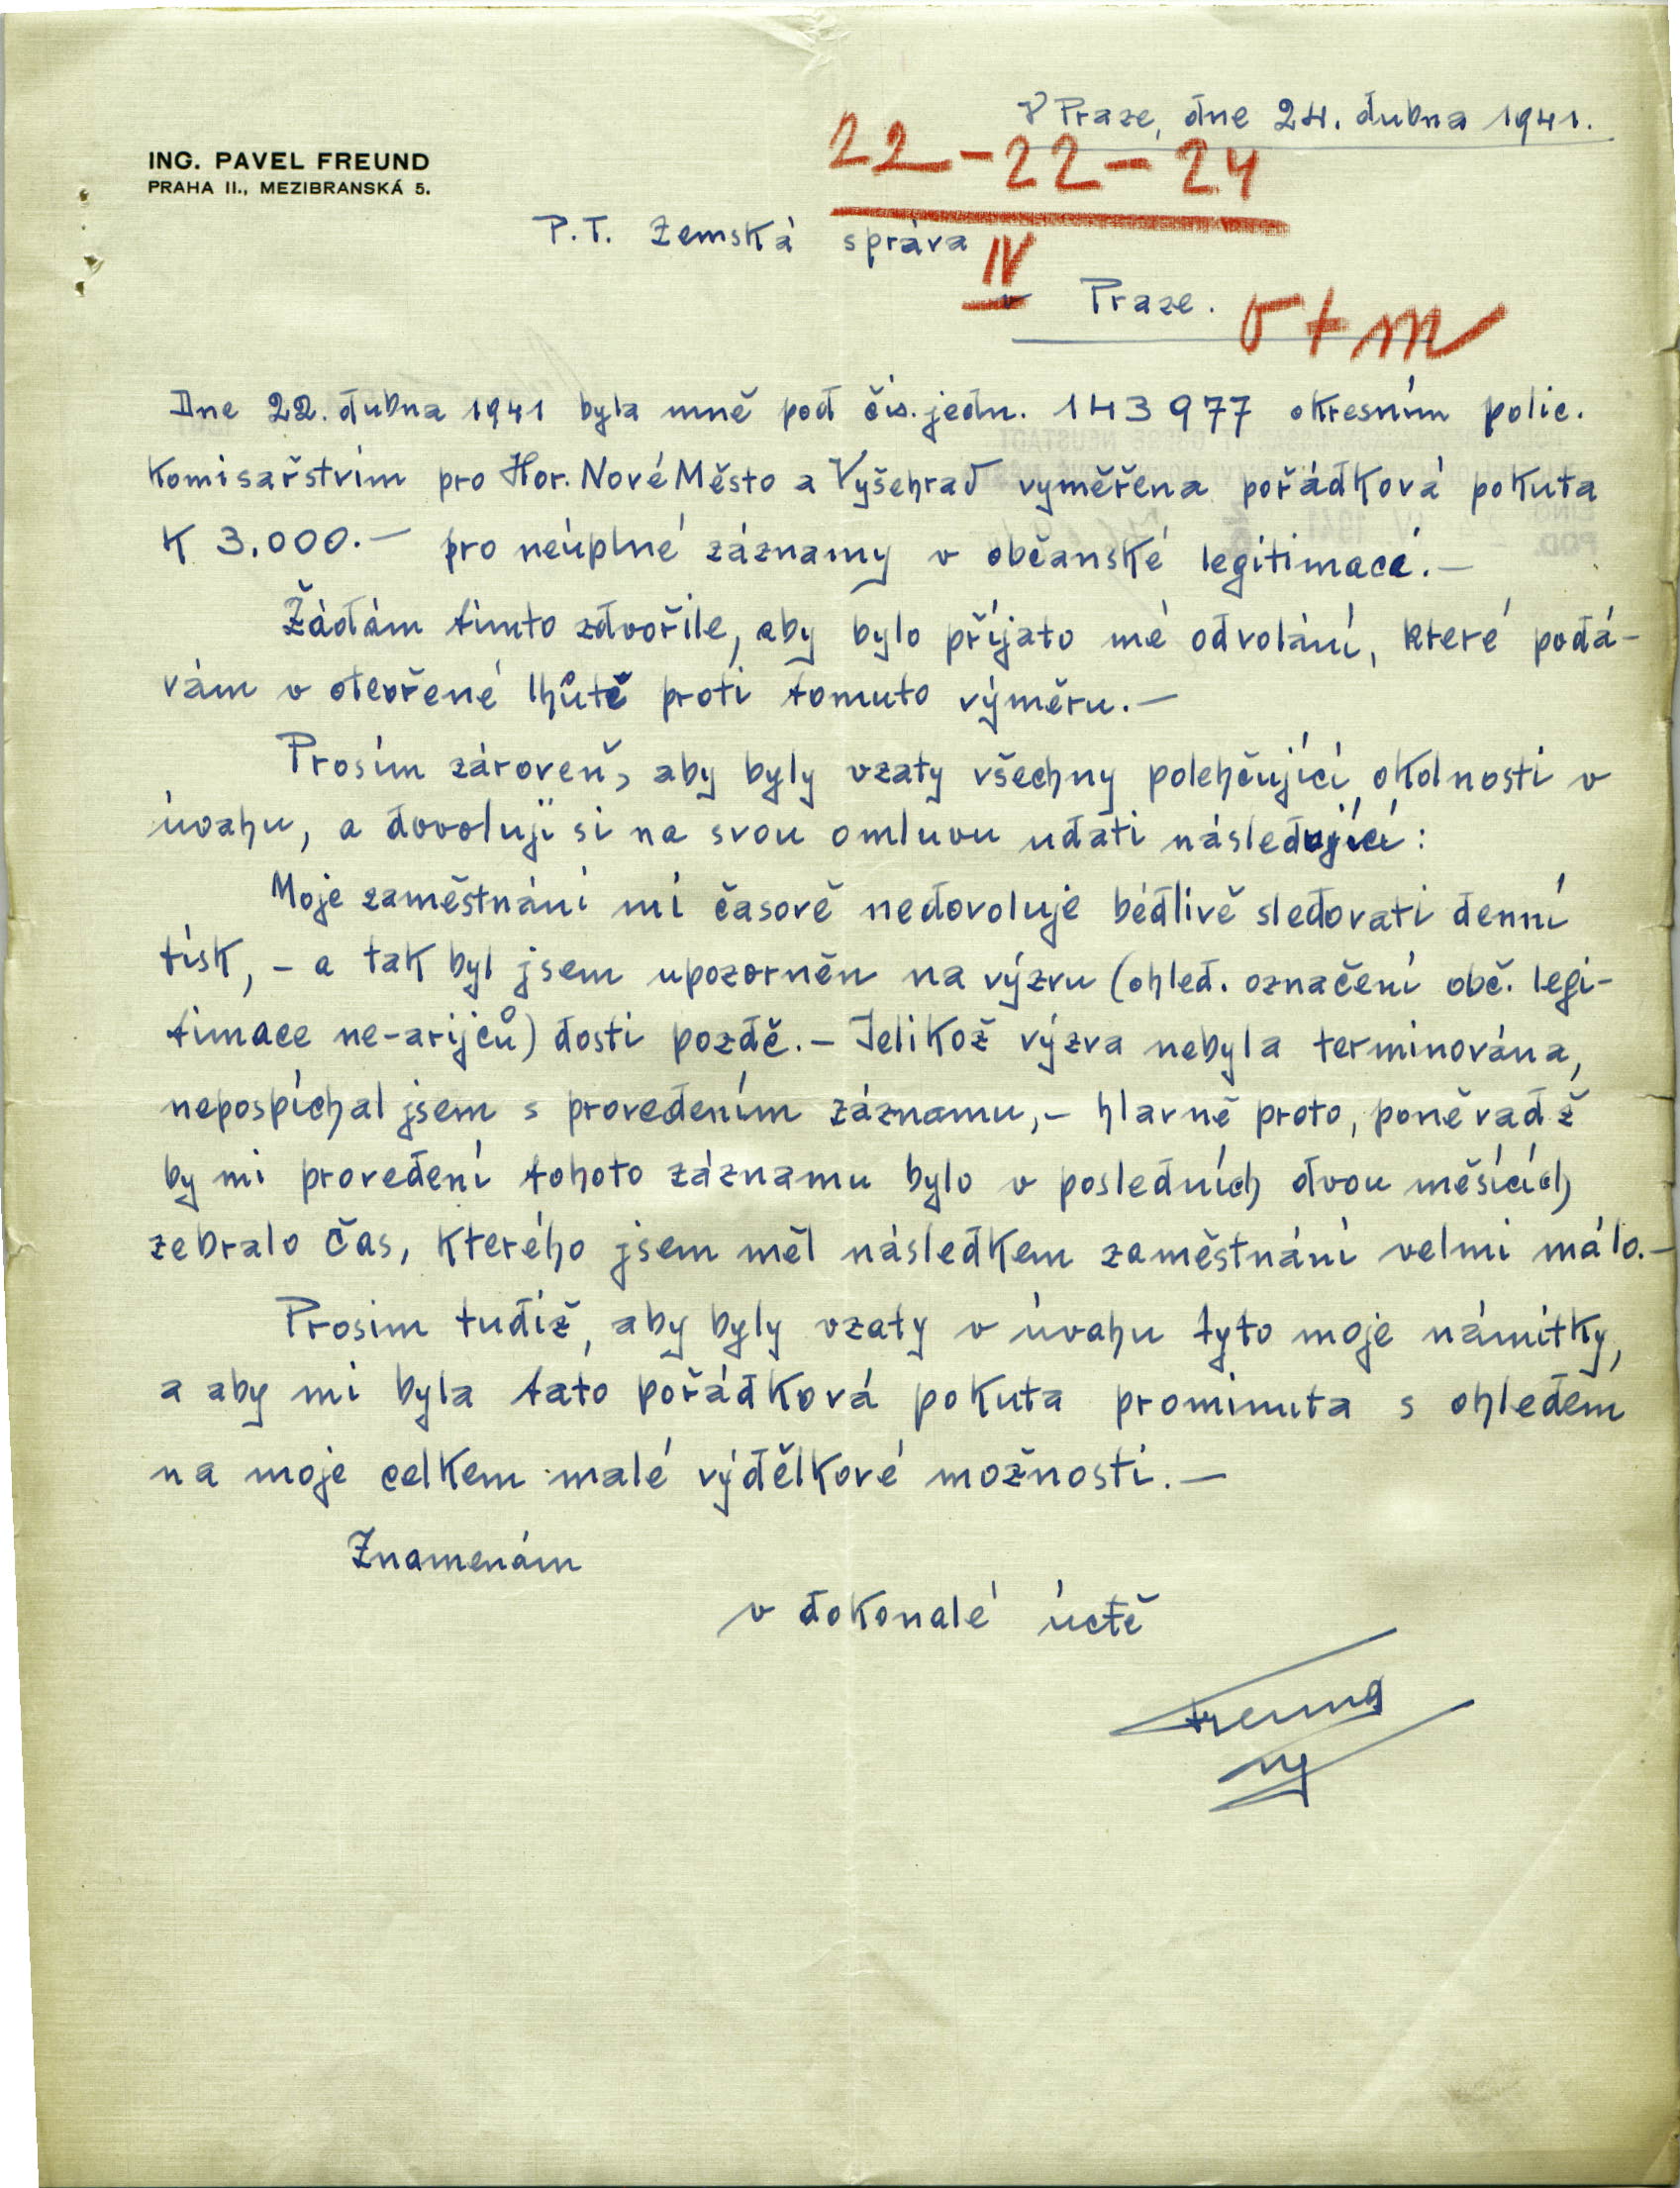 V Praze, dne 24. dubna 1941.
22-22-24
ING. PAVEL FREUND
PRAHA II., MEZIBRANSKÁ 5.
P.T. Zemská správa
IV
v Praze.
Dne 22. dubna 1941 byla mně pod čís. jedn. 143977 okresním polic.
Komisařstvím pro Hor. Nové Město a Vyšehrad vyměřena pořádková pokuta
K 3.000.— pro neúplné záznamy v občanské legitimaci.—
Žádám tímto zdvořile, aby bylo přijato mé odvolání, které podá-
vám v otevřené lhůtě proti tomuto výměru.—
Prosím zároveň, aby byly vzaty všechny polehčující okolnosti v
úvahu, a dovoluji si na svou omluvu udati následující:
Moje zaměstnání mi časově nedovoluje bedlivě sledovati denní
tisk, - a tak byl jsem upozorněn na výzvu (ohled. označení obč. legi-
timace ne-arijců) dosti pozdě.— Jelikož výzva nebyla terminována,
nepospíchal jsem s provedením záznamu,- hlavně proto, poněvadž
by mi provedení tohoto záznamu bylo v posledních dvou měsících
zebralo čas, kterého jsem měl následkem zaměstnání velmi málo.—
Prosím tudíž, aby byly vzaty v úvahu tyto moje námitky,
a aby mi byla tato pořádková pokuta prominuta s ohledem
na moje celkem malé výdělkové možnosti.—
Znamenám
v dokonalé úctě
Freund